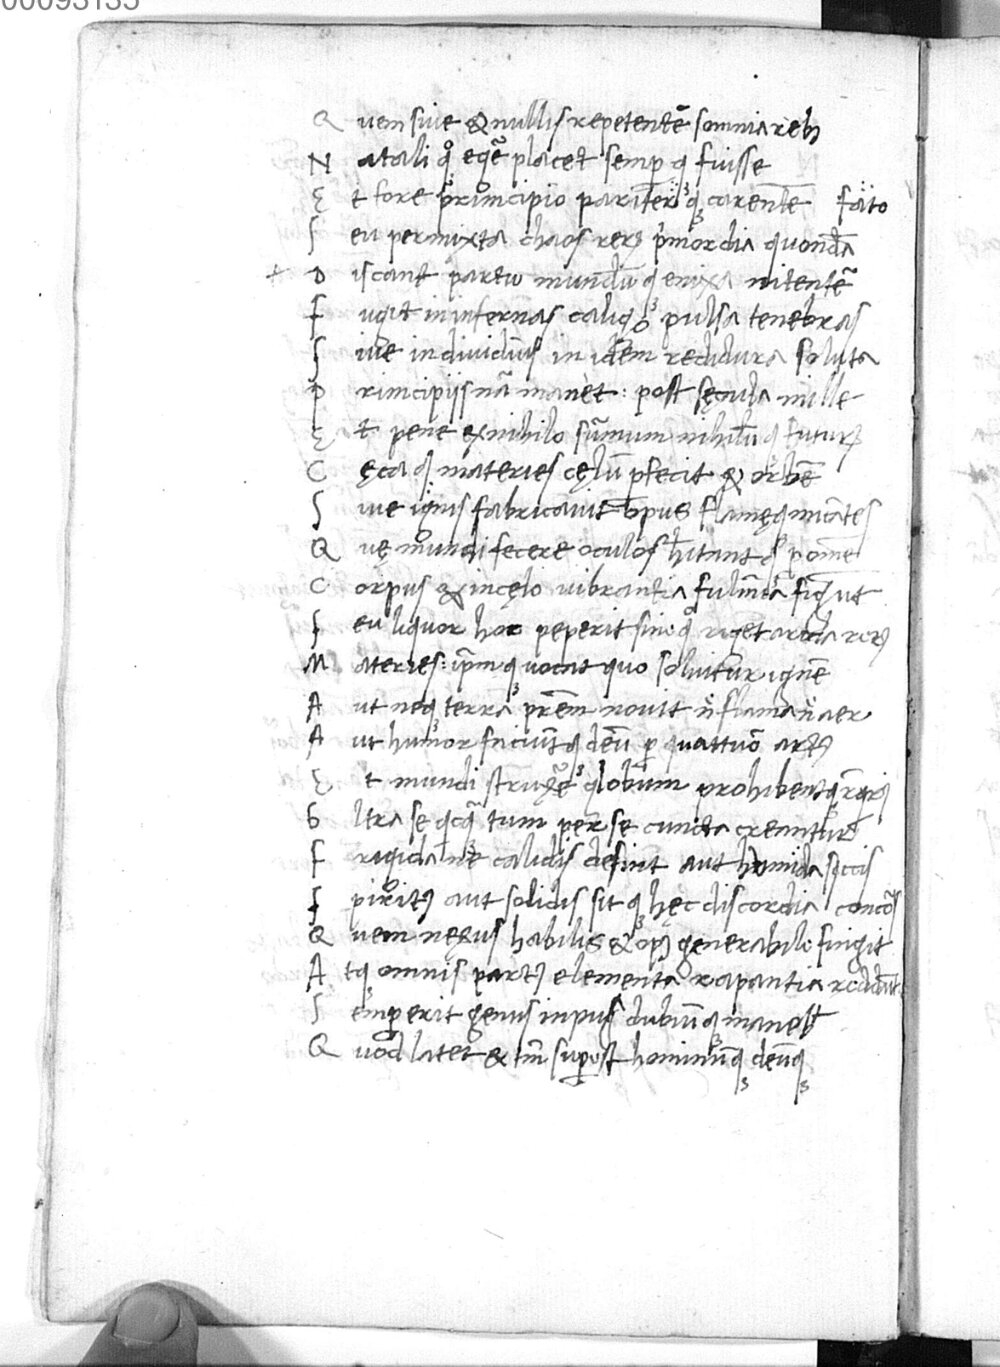 00093135
Q uem siue & nullis repetentē somnia reb3
N atali q̊ eqē placet semp q fuisse
E t fore principio pariter q3 carentē fato
S eu permixta chaos rerꝝ p̄mordia quondā
+ D iscant partu mundū q3 enixa nitentē
F ugit in infernas caligo pulsa tenebras
S iue indiuiduis in idem reditura soluta
P rincipijs nā manet: post sęcula mille
E t pene ex nihilo sūmum nihilū q3 futurꝝ
C ęca q3 materies cęlū pfecit & orbē
S iue ignis fabricauit opus flamęq3 micātes
Q uę mundi fecere oculos hītant q3 p omē
C orpus & in cęlo uibrantia fulmīa fingūt
S eu liquor hoc peperit sine q̊ riget arida rerꝝ
M ateries: ipm q3 uorat quo soluitur ignē
A ut neq3 terrā prēm nouit n̄ flama n̄ aer
A ut humor faciūt q3 deū p quattuor artꝰ
E t mundi struxē globum prohibent q3
U ltra se qcq̄ tum per se cuncta creantur
F rigida ne calidis desint aut humida siccis
S piritꝰ aut solidis sit q3 hęc discordia concors
Q uem nexus habilis & opꝰ generabile fingit
A tq3 omnis partꝰ elementa capantia reddat
S emp erit genus in pugna dubiū q3 manebit
Q uod latet & tm̄ supost hominūq3 deūq3